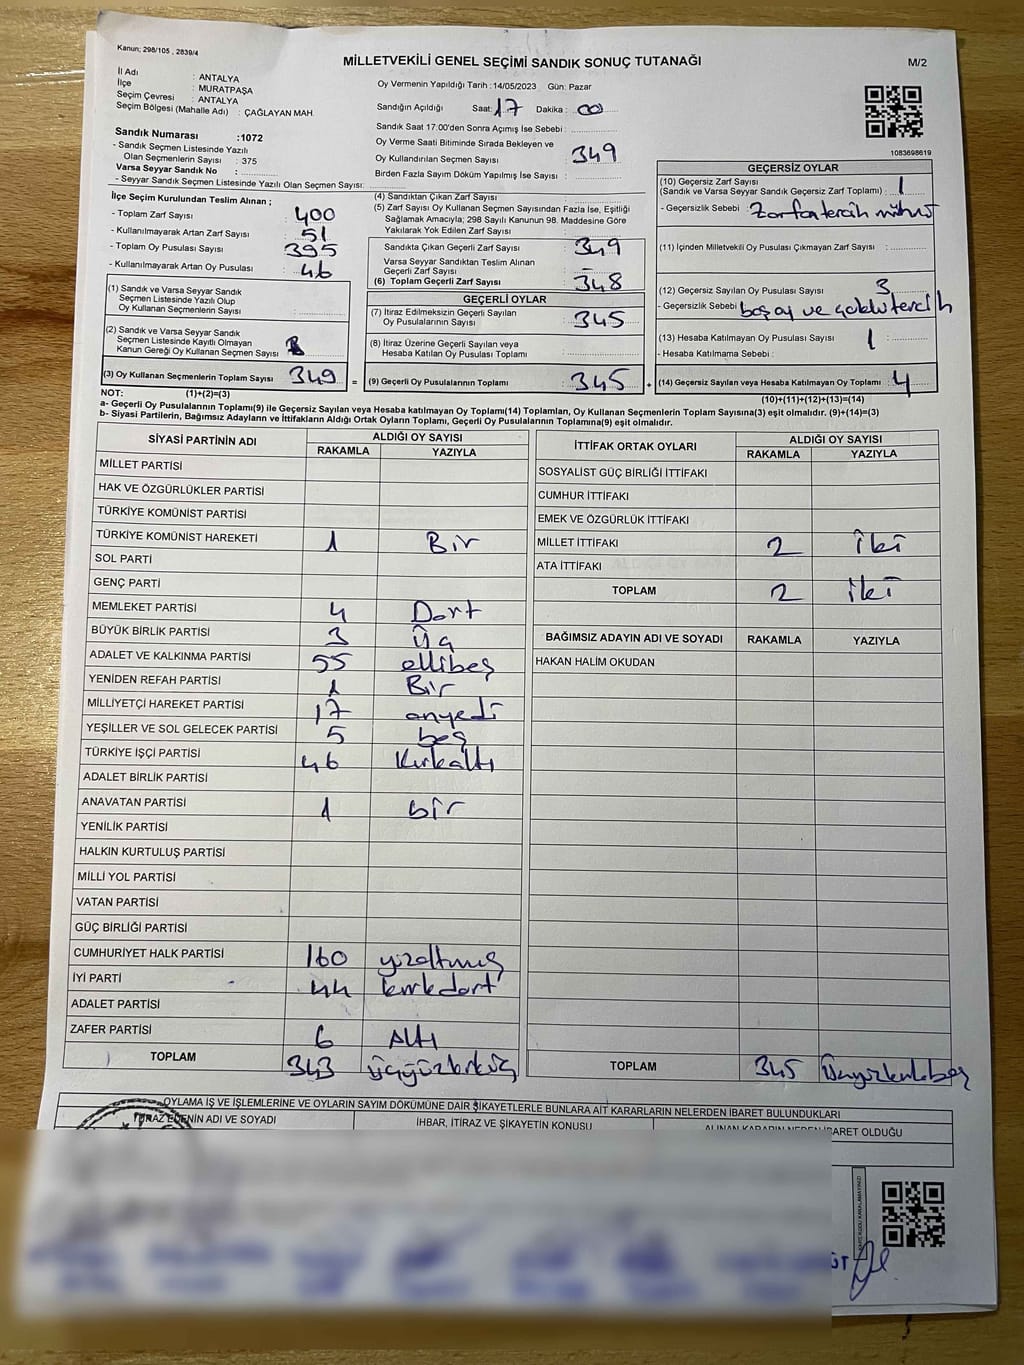 Kanun; 298/105 , 2839/4
MİLLETVEKİLİ GENEL SEÇİMİ SANDIK SONUÇ TUTANAĞI
M/2
İl Adı : ANTALYA
İlçe : MURATPAŞA
Seçim Çevresi : ANTALYA
Seçim Bölgesi (Mahalle Adı) : ÇAĞLAYAN MAH
Oy Vermenin Yapıldığı Tarih :14/05/2023 Gün: Pazar
Sandığın Açıldığı Saat: 17 Dakika : 00
Sandık Saat 17:00'den Sonra Açımış İse Sebebi :
Oy Verme Saati Bitiminde Sırada Bekleyen ve
Oy Kullandırılan Seçmen Sayısı : 349
Birden Fazla Sayım Döküm Yapılmış İse Sayısı :
1083698619
Sandık Numarası :1072
- Sandık Seçmen Listesinde Yazılı
Olan Seçmenlerin Sayısı : 375
Varsa Seyyar Sandık No :
- Seyyar Sandık Seçmen Listesinde Yazılı Olan Seçmen Sayısı:
İlçe Seçim Kurulundan Teslim Alınan ;
- Toplam Zarf Sayısı : 400
- Kullanılmayarak Artan Zarf Sayısı : 51
- Toplam Oy Pusulası Sayısı : 395
- Kullanılmayarak Artan Oy Pusulası : 46
(1) Sandık ve Varsa Seyyar Sandık
Seçmen Listesinde Yazılı Olup
Oy Kullanan Seçmenlerin Sayısı :
(2) Sandık ve Varsa Seyyar Sandık
Seçmen Listesinde Kayıtlı Olmayan
Kanun Gereği Oy Kullanan Seçmen Sayısı :
(3) Oy Kullanan Seçmenlerin Toplam Sayısı 349 =
(4) Sandıktan Çıkan Zarf Sayısı
(5) Zarf Sayısı Oy Kullanan Seçmen Sayısından Fazla İse, Eşitliği
Sağlamak Amacıyla; 298 Sayılı Kanunun 98. Maddesine Göre
Yakılarak Yok Edilen Zarf Sayısı :
Sandıkta Çıkan Geçerli Zarf Sayısı : 349
Varsa Seyyar Sandıktan Teslim Alınan
Geçerli Zarf Sayısı : -
(6) Toplam Geçerli Zarf Sayısı : 348
GEÇERLİ OYLAR
(7) İtiraz Edilmeksizin Geçerli Sayılan
Oy Pusulalarının Sayısı : 345
(8) İtiraz Üzerine Geçerli Sayılan veya
Hesaba Katılan Oy Pusulaları Toplamı :
(9) Geçerli Oy Pusulalarının Toplamı : 345 +
GEÇERSİZ OYLAR
(10) Geçersiz Zarf Sayısı
(Sandık ve Varsa Seyyar Sandık Geçersiz Zarf Toplamı) : 1
- Geçersizlik Sebebi : Zarfa tercih mührü
(11) İçinden Milletvekili Oy Pusulası Çıkmayan Zarf Sayısı :
(12) Geçersiz Sayılan Oy Pusulası Sayısı : 3
- Geçersizlik Sebebi : boş oy ve çoklu tercih
(13) Hesaba Katılmayan Oy Pusulası Sayısı : 1
- Hesaba Katılmama Sebebi :
(14) Geçersiz Sayılan veya Hesaba Katılmayan Oy Toplamı : 4
NOT: (1)+(2)=(3)
(10)+(11)+(12)+(13)=(14)
a- Geçerli Oy Pusulalarının Toplamı(9) ile Geçersiz Sayılan veya Hesaba katılmayan Oy Toplamı(14) Toplamları, Oy Kullanan Seçmenlerin Toplam Sayısına(3) eşit olmalıdır. (9)+(14)=(3)
b- Siyasi Partilerin, Bağımsız Adayların ve İttifakların Aldığı Ortak Oyların Toplamı, Geçerli Oy Pusulalarının Toplamına(9) eşit olmalıdır.
SİYASİ PARTİNİN ADI
ALDIĞI OY SAYISI
RAKAMLA YAZIYLA
MİLLET PARTİSİ
HAK VE ÖZGÜRLÜKLER PARTİSİ
TÜRKİYE KOMÜNİST PARTİSİ
TÜRKİYE KOMÜNİST HAREKETİ 1 Bir
SOL PARTİ
GENÇ PARTİ
MEMLEKET PARTİSİ 4 Dört
BÜYÜK BİRLİK PARTİSİ 3 Üç
ADALET VE KALKINMA PARTİSİ 55 ellibeş
YENİDEN REFAH PARTİSİ 1 Bir
MİLLİYETÇİ HAREKET PARTİSİ 17 onyedi
YEŞİLLER VE SOL GELECEK PARTİSİ 5 beş
TÜRKİYE İŞÇİ PARTİSİ 46 Kırkaltı
ADALET BİRLİK PARTİSİ
ANAVATAN PARTİSİ 1 bir
YENİLİK PARTİSİ
HALKIN KURTULUŞ PARTİSİ
MİLLİ YOL PARTİSİ
VATAN PARTİSİ
GÜÇ BİRLİĞİ PARTİSİ
CUMHURİYET HALK PARTİSİ 160 yüzaltmış
İYİ PARTİ 44 kırkdört
ADALET PARTİSİ
ZAFER PARTİSİ 6 Altı
TOPLAM 343 Üçyüzkırküç
İTTİFAK ORTAK OYLARI
ALDIĞI OY SAYISI
RAKAMLA YAZIYLA
SOSYALİST GÜÇ BİRLİĞİ İTTİFAKI
CUMHUR İTTİFAKI
EMEK VE ÖZGÜRLÜK İTTİFAKI
MİLLET İTTİFAKI 2 İki
ATA İTTİFAKI
TOPLAM 2 İki
BAĞIMSIZ ADAYIN ADI VE SOYADI RAKAMLA YAZIYLA
HAKAN HALİM OKUDAN
TOPLAM 345 Üçyüzkırkbeş
OYLAMA İŞ VE İŞLEMLERİNE VE OYLARIN SAYIM DÖKÜMÜNE DAİR ŞİKAYETLERLE BUNLARA AİT KARARLARIN NELERDEN İBARET BULUNDUKLARI
İTİRAZ EDENİN ADI VE SOYADI
İHBAR, İTİRAZ VE ŞİKAYETİN KONUSU
ALINAN KARARIN NEDEN İBARET OLDUĞU